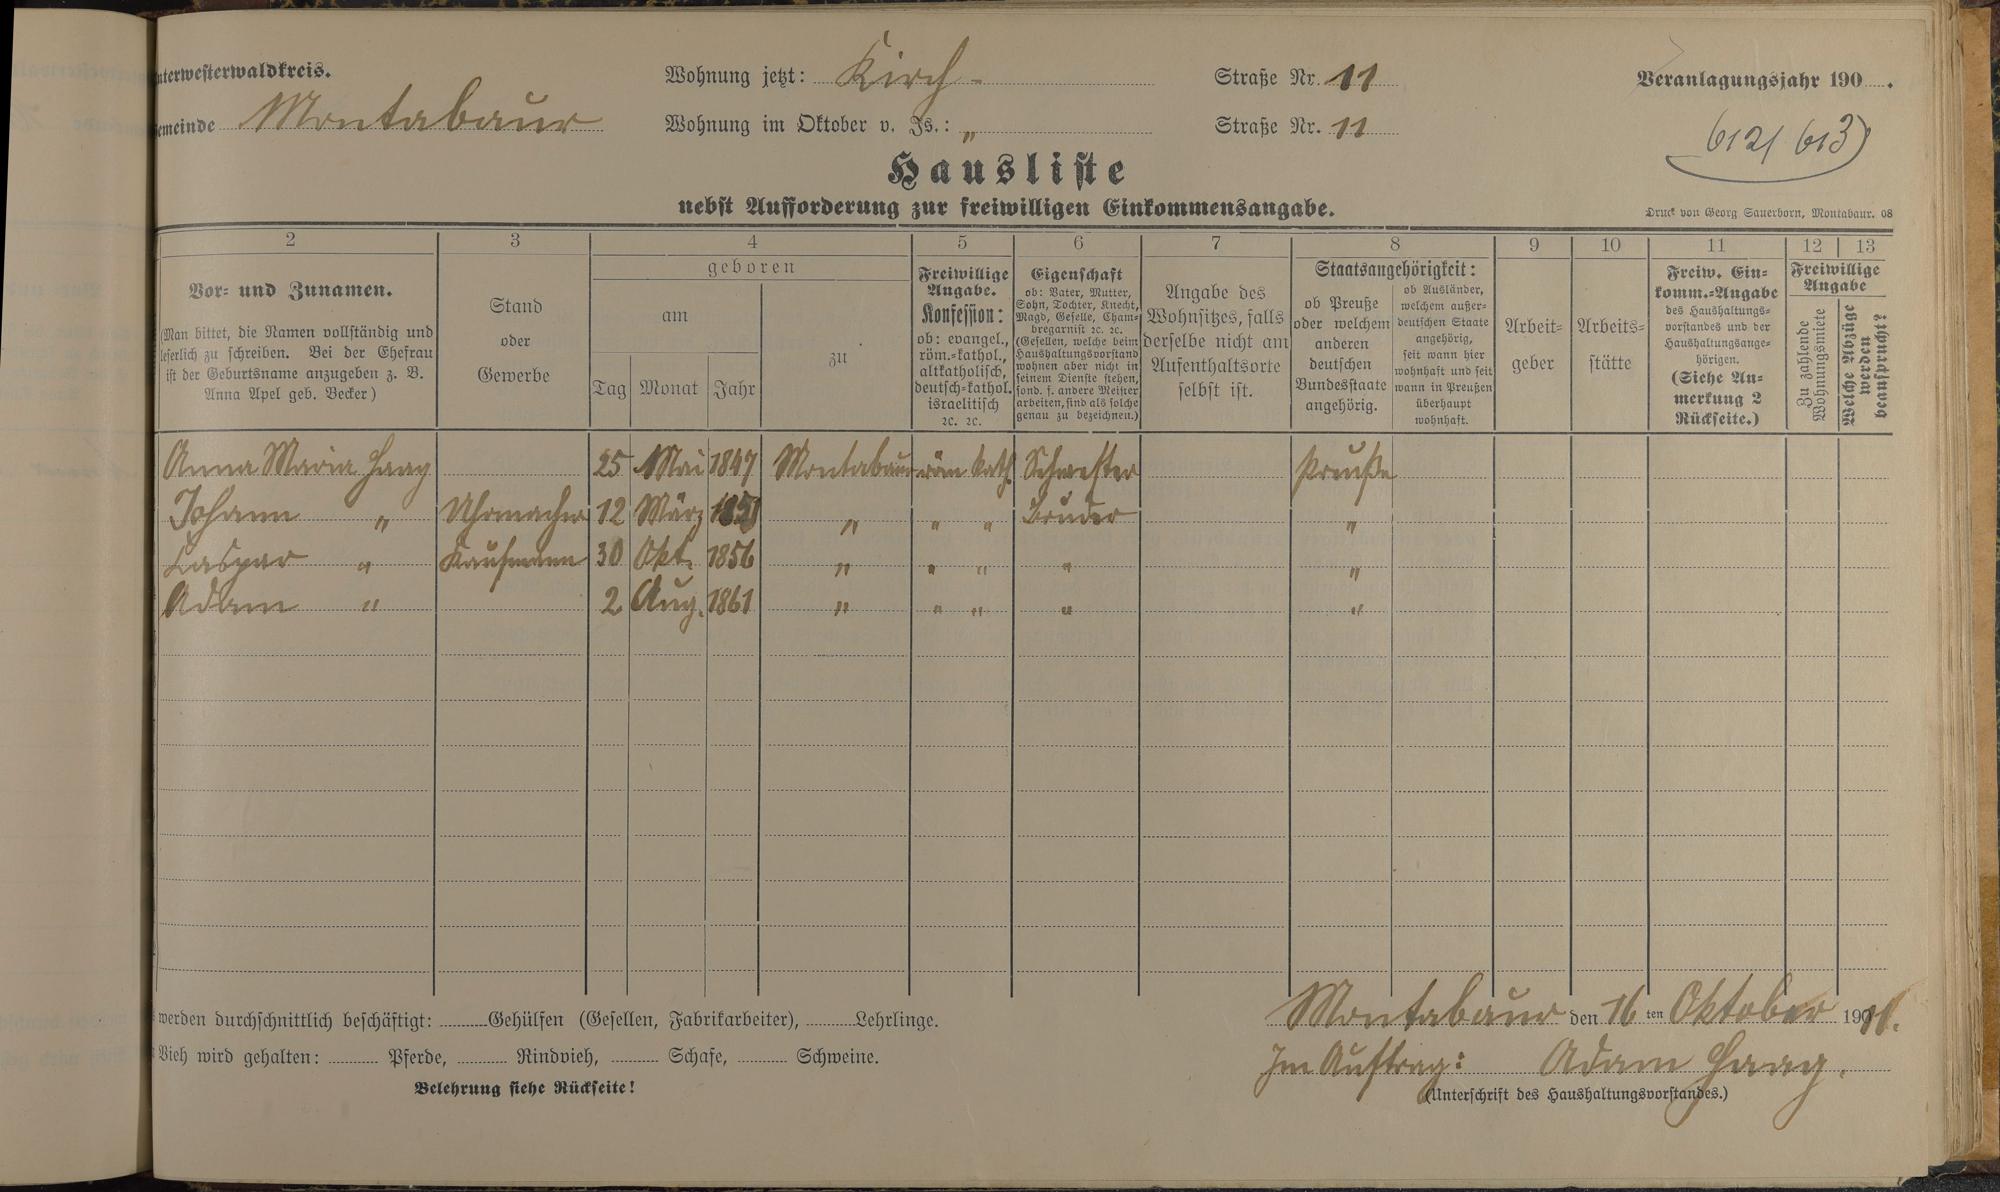 nterwesterwaldkreis.
Wohnung jetzt: Kirch- Straße Nr. 11
Veranlagungsjahr 190 .
emeinde Montabaur
Wohnung im Oktober v. Js.: „ Straße Nr. 11
612/613
Hausliste
nebst Aufforderung zur freiwilligen Einkommensangabe.
Druck von Georg Sauerborn, Montabaur. 08
2 3 4 5 6 7 8 9 10 11 12 13
Vor- und Zunamen.
(Man bittet, die Namen vollständig und
leserlich zu schreiben. Bei der Ehefrau
ist der Geburtsname anzugeben z. B.
Anna Apel geb. Becker)
Stand
oder
Gewerbe
geboren
am
Tag Monat Jahr
zu
Freiwillige
Angabe.
Konfession:
ob: evangel.,
röm.-kathol.,
altkatholisch,
deutsch-kathol.
israelitisch
ꝛc. ꝛc.
Eigenschaft
ob: Vater, Mutter,
Sohn, Tochter, Knecht,
Magd, Geselle, Cham-
bregarnist ꝛc. ꝛc.
(Gesellen, welche beim
Haushaltungsvorstand
wohnen aber nicht in
seinem Dienste stehen,
sond. f. andere Meister
arbeiten, sind als solche
genau zu bezeichnen.)
Angabe des
Wohnsitzes, falls
derselbe nicht am
Aufenthaltsorte
selbst ist.
Staatsangehörigkeit:
ob Preuße
oder welchem
anderen
deutschen
Bundesstaate
angehörig.
ob Ausländer,
welchem außer-
deutschen Staate
angehörig,
seit wann hier
wohnhaft und seit
wann in Preußen
überhaupt
wohnhaft.
Arbeit-
geber
Arbeits-
stätte
Freiw. Ein-
komm.-Angabe
des Haushaltungs-
vorstandes und der
Haushaltungsange-
hörigen.
(Siehe An-
merkung 2
Rückseite.)
Freiwillige
Angabe
Zu zahlende
Wohnungsmiete
Welche Abzüge
werden
beansprucht?
Anna Maria Haag 25 Mai 1847 Montabaur röm kath. Schwester Preuße
Johann „ Uhrmacher 12 März „ „ „ Bruder „
Caspar „ Kaufmann 30 Okt. 1856 „ „ „ „ „
Adam „ 2 Aug. 1861 „ „ „ „ „
werden durchschnittlich beschäftigt: Gehülfen (Gesellen, Fabrikarbeiter), Lehrlinge.
Vieh wird gehalten: Pferde, Rindvieh, Schafe, Schweine.
Belehrung siehe Rückseite!
Montabaur den 16 ten Oktober
Im Auftrag: Adam Haag.
(Unterschrift des Haushaltungsvorstandes.)